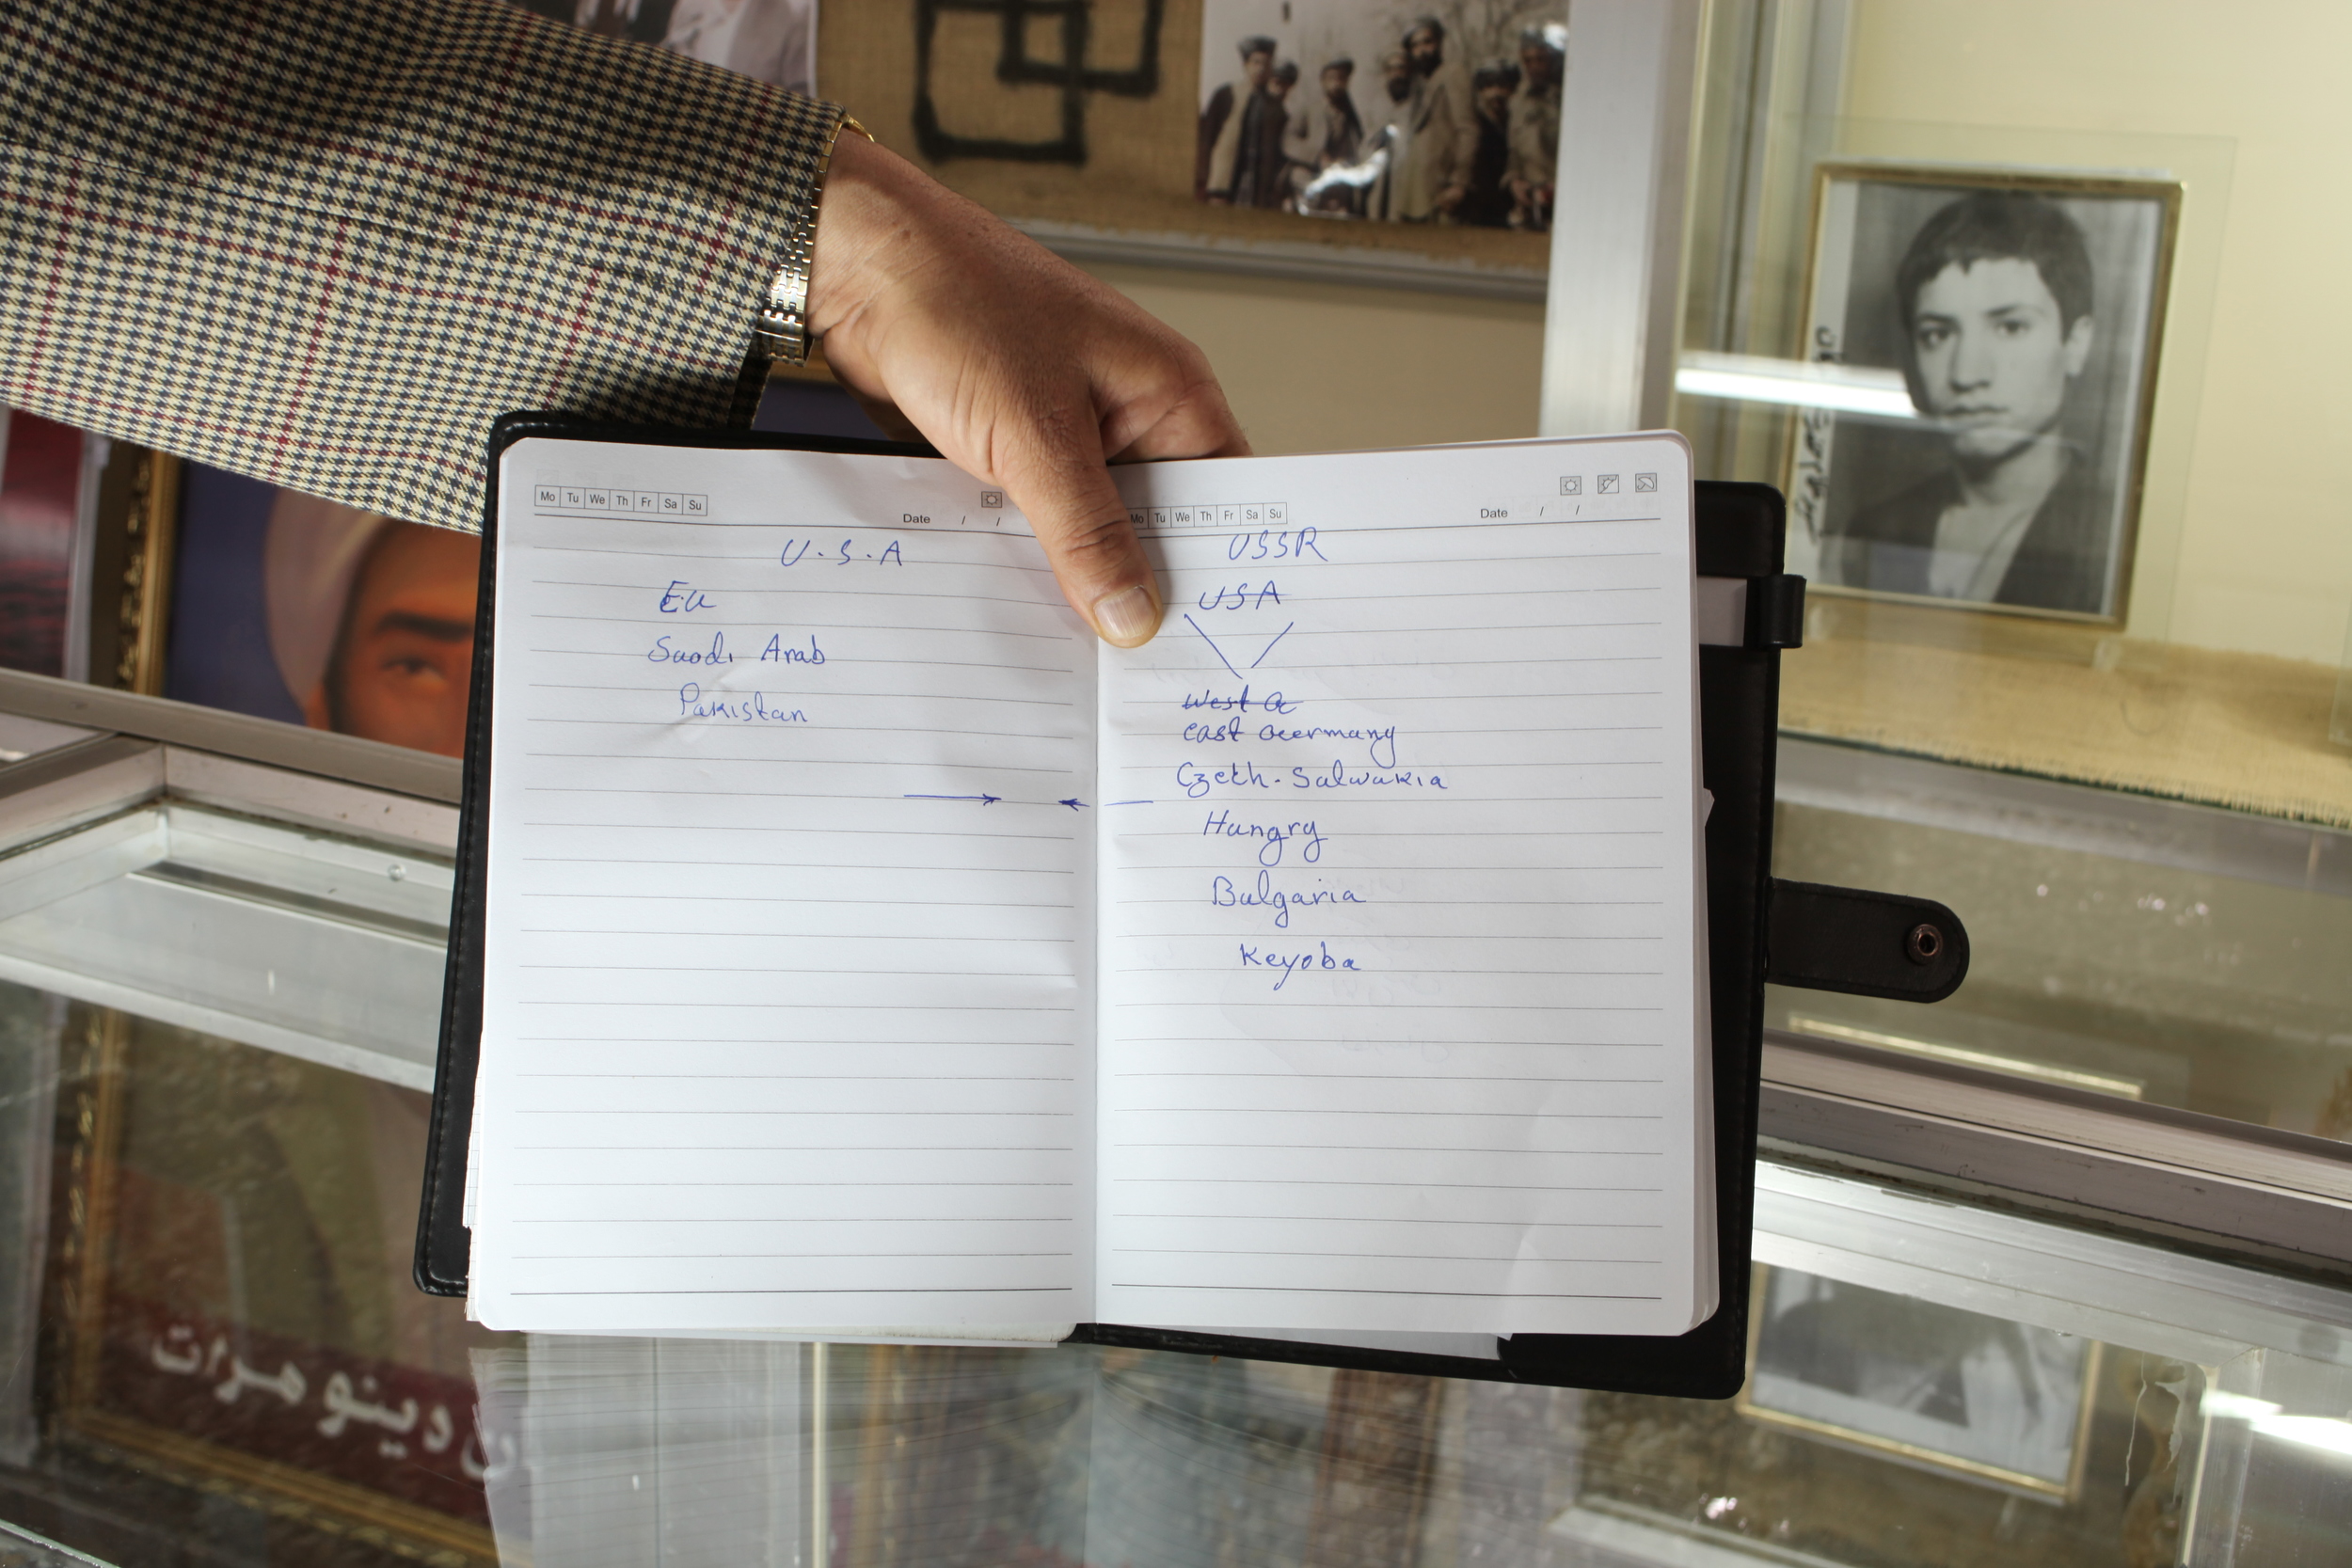 Mo Tu We Th Fr Sa Su
Date / /
U.S.A
Eu
Saodi Arab
Pakistan
Mo Tu We Th Fr Sa Su
Date / /
USSR
USA
West G
east Germany
Czech-Salwakia
Hungry
Bulgaria
Keyoba
دینو هرات